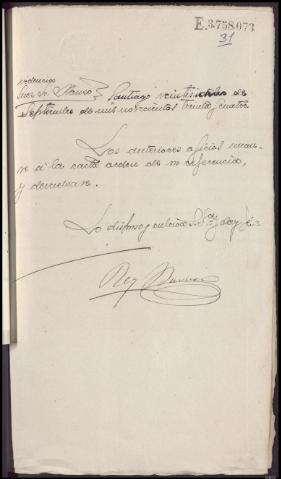 E.3758.073
31
Providencia
Juez Sr. Alonso} Santiago veintisiete de
Septiembre de mil novecientos treinta y cuatro
Los anteriores oficios unan-
se a la carta orden de su referencia,
y devuelvase.
Lo dispuso y rubrica S.S. doy fe=
Rey